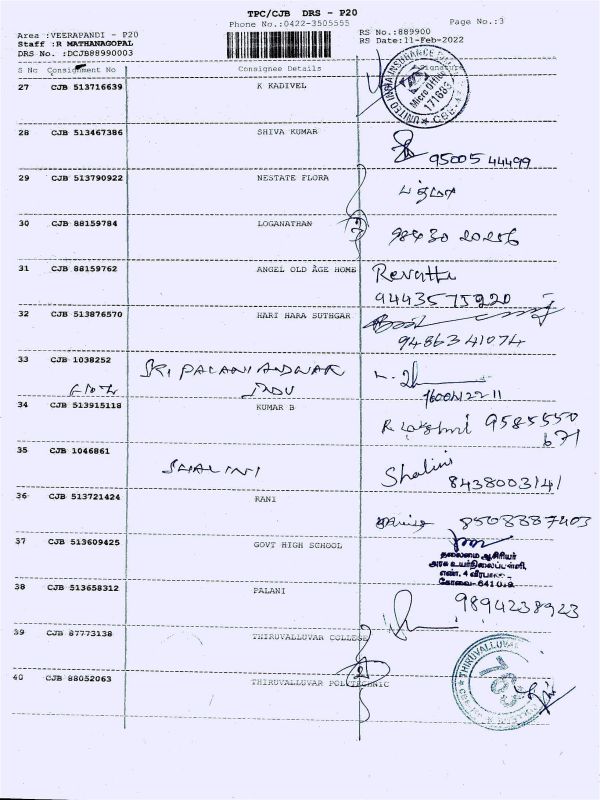 TPC/CJB DRS - P20
Phone No.:0422-3505555
Page No.:3
Area :VEERAPANDI - P20
RS No.:889900
Staff :R MATHANAGOPAL
RS Date:11-Feb-2022
DRS No. :DCJB88990003
S No Consignment No Consignee Details Signature
27 CJB 513716639 K KADIVEL
UNITED INDIA INSURANCE
Micro Office
171683
28 CJB 513467386 SHIVA KUMAR
95005 44499
29 CJB 513790922 NESTATE FLORA
பத்மா
30 CJB 88159784 LOGANATHAN
98430 20256
31 CJB 88159762 ANGEL OLD AGE HOME Revathi
9443575220
32 CJB 513876570 HARI HARA SUTHGAR
9486341074
33 CJB 1038252 SRI PALANI ANDWAR
34 CJB 513915118 KUMAR B
R Lakshmi 9585550
671
35 CJB 1046861 SHALINI Shalini
8438003141
36 CJB 513721424 RANI
8508887403
37 CJB 513609425 GOVT HIGH SCHOOL
தலைமை ஆசிரியர்
அரசு உயர்நிலைப்பள்ளி,
38 CJB 513658312 PALANI
9894238923
39 CJB 87773138 THIRUVALLUVAR COLLEGE
40 CJB 88052063 THIRUVALLUVAR POLYTECHNIC
THIRUVALLUVAR